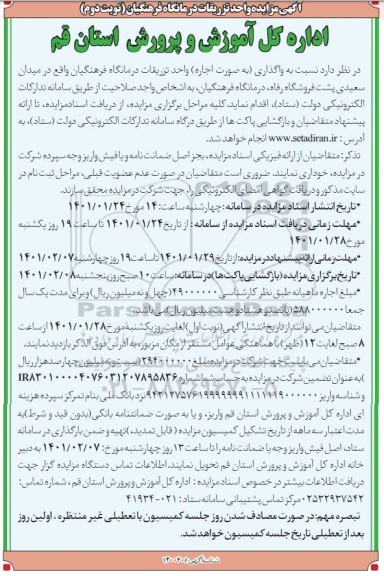 آگهی مزایده واحد تزریقات درمانگاه فرهنگیان (نوبت دوم)
اداره کل آموزش و پرورش استان قم
در نظر دارد نسبت به واگذاری (به صورت اجاره) واحد تزریقات درمانگاه فرهنگیان واقع در میدان
سعیدی پشت فروشگاه رفاه، درمانگاه فرهنگیان، به اشخاص واجد صلاحیت از طریق سامانه تدارکات
الکترونیکی دولت (ستاد)، اقدام نماید. کلیه مراحل برگزاری مزایده، از دریافت اسناد مزایده، تا ارائه
پیشنهاد متقاضیان و بازگشایی پاکت ها از طریق درگاه سامانه تدارکات الکترونیکی دولت (ستاد)، به
آدرس: www.setadiran.ir انجام خواهد شد.
تذکر: متقاضیان از ارائه فیزیکی اسناد مزایده، بجز اصل ضمانت نامه و یا فیش واریز وجه سپرده شرکت
در مزایده، خودداری نمایند. ضروری است متقاضیان در صورت عدم عضویت قبلی، مراحل ثبت نام در
سایت مذکور و دریافت گواهی امضای الکترونیکی را، جهت شرکت در مزایده محقق سازند.
*تاریخ انتشار اسناد مزایده در سامانه: چهارشنبه ساعت: ۱۴ مورخ ۱۴۰۱/۰۱/۲۴
*مهلت زمانی دریافت اسناد مزایده از سامانه: از تاریخ ۱۴۰۱/۰۱/۲۴ تا ساعت ۱۹ روز یکشنبه
مورخ ۱۴۰۱/۰۱/۲۸
*مهلت زمانی ارائه پیشنهاد در مزایده: از تاریخ ۱۴۰۱/۰۱/۲۹ تا ساعت ۱۹ روز چهارشنبه ۱۴۰۱/۰۲/۰۷
*تاریخ برگزاری مزایده (بازگشایی پاکت ها) در سامانه: ساعت ۱۰ صبح روز پنجشنبه ۱۴۰۱/۰۲/۰۸
*مبلغ اجاره ماهیانه طبق نظر کارشناسی ۴۹۰۰۰۰۰۰ (چهل و نه میلیون ریال) و برای مدت یک سال
جمعا ۵۸۸۰۰۰۰۰۰ (پانصد و هشتاد و هشت میلیون ریال) می باشد.
متقاضیان می توانند از تاریخ انتشار آگهی (نوبت اول) لغایت روز یکشنبه مورخ ۱۴۰۱/۰۱/۲۸ از ساعت
۸ صبح لغایت ۱۲ (ظهر) با هماهنگی عوامل مستقر از مکان مزبور، به آدرس فوق الذکر بازدید نمایند.
*متقاضیان می بایست جهت شرکت در مزایده مبلغ ۲۹۴۰۰۰۰۰ (بیست و نه میلیون چهارصد هزار ریال
) به عنوان تضمین شرکت در مزایده به حساب شبا شماره IR۸۳۰۱۰۰۰۰۴۰۷۶۰۳۱۲۰۷۸۹۵۸۳۶
و شناسه واریز نزد بانک ملی بنام تمرکز سپرده هزینه
ای اداره کل آموزش و پرورش استان قم واریز، و یا به صورت ضمانتنامه بانکی (بدون قید و شرط) به
مدت اعتبار سه ماهه از تاریخ تشکیل کمیسیون مزایده (قابل تمدید)، تهیه و ضمن بارگذاری در سامانه
ستاد، اصل فیش واریز وجه یا ضمانت نامه را تا ساعت ۱۳ روز چهارشنبه مورخ: ۱۴۰۱/۰۲/۰۷ به دبیر
خانه اداره کل آموزش و پرورش استان قم تحویل نمایند. اطلاعات تماس دستگاه مزایده گزار جهت
دریافت اطلاعات بیشتر در خصوص اسناد مزایده: اداره کل آموزش و پرورش استان قم، شماره تماس:
۰۲۵۳۲۹۳۷۵۴۲ مرکز تماس پشتیبانی سامانه ستاد: ۰۲۱-۴۱۹۳۴
تبصره مهم: در صورت مصادف شدن روز جلسه کمیسیون با تعطیلی غیر منتظره، اولین روز
بعد از تعطیلی تاریخ جلسه کمیسیون خواهد شد.